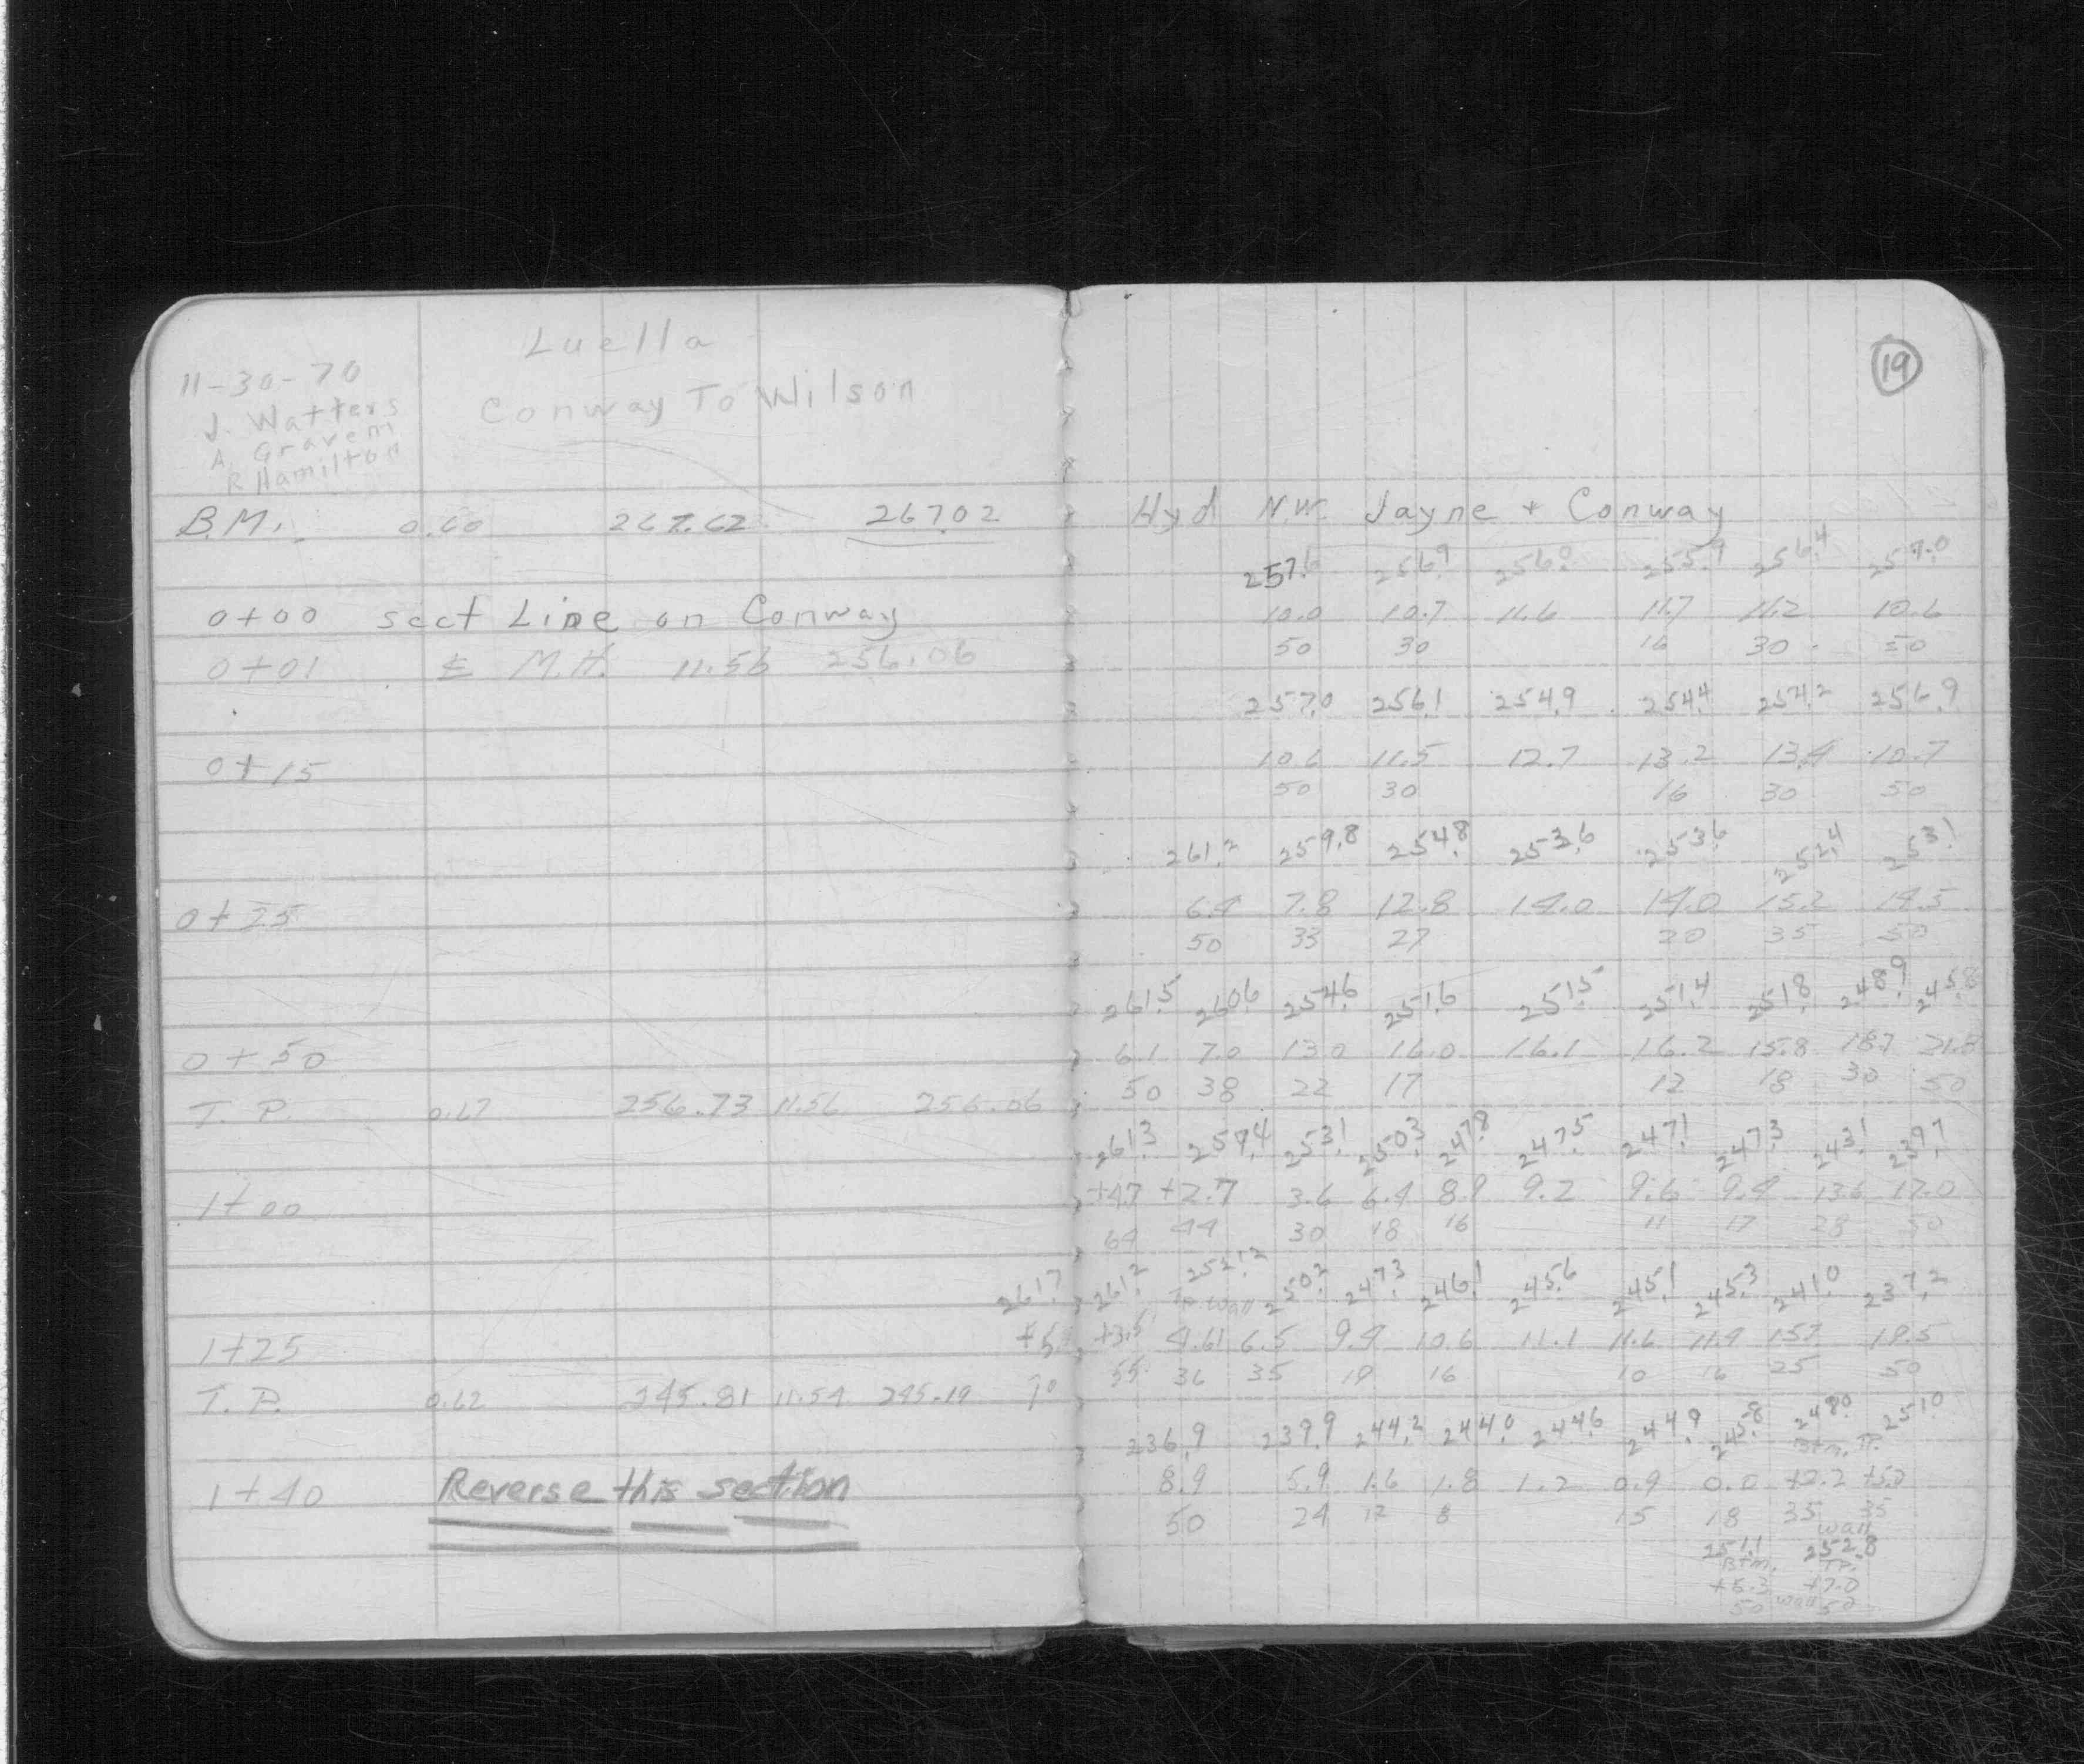 Luella
11-30-70
Conway To Wilson
J. Watters
A. Gravem
R Hamilton
19
B.M. 0.60 267.62 267.02 Hyd N.W. Jayne + Conway
257.6 256.9 256.0 255.9 256.4 257.0
0+00 sect Line on Conway 10.0 10.7 11.6 11.7 11.2 10.6
50 30 16 30 50
0+01 ℄ M.H. 11.56 256.06
257.0 256.1 254.9 254.4 254.2 256.9
0+15 10.6 11.5 12.7 13.2 13.4 10.7
50 30 16 30 50
261.2 259.8 254.8 253.6 253.6 252.4 253.1
0+25 6.4 7.8 12.8 14.0 14.0 15.2 14.5
50 33 27 20 35 50
261.5 260.6 254.6 251.6 251.5 251.4 251.8 248.9 245.8
0+50 6.1 7.0 13.0 16.0 16.1 16.2 15.8 18.7 21.8
50 38 22 17 12 18 30 50
T.P. 0.67 256.73 11.56 256.06
261.3 259.4 253.1 250.3 247.8 247.5 247.1 247.3 243.1 239.7
1+00 +4.7 +2.7 3.6 6.4 8.9 9.2 9.6 9.4 13.6 17.0
64 44 30 18 16 11 17 28 50
261.7 261.2 252.12 250.2 247.3 246.1 245.6 245.1 245.3 241.0 237.2
Tp wall
1+25 +5 +3.5 4.61 6.5 9.4 10.6 11.1 11.6 11.4 15.7 19.5
70 55 36 35 19 16 10 16 25 50
T.P. 0.62 245.81 11.54 245.19
236.9 239.9 244.2 244.0 244.6 244.9 245.8 248.0 251.0
Btm. Tp.
1+40 Reverse this section 8.9 5.9 1.6 1.8 1.2 0.9 0.0 +2.2 +5.0
50 24 12 8 15 18 35 35
wall
251.1 252.8
Btm. TP.
+5.3 +7.0
50 wall 50